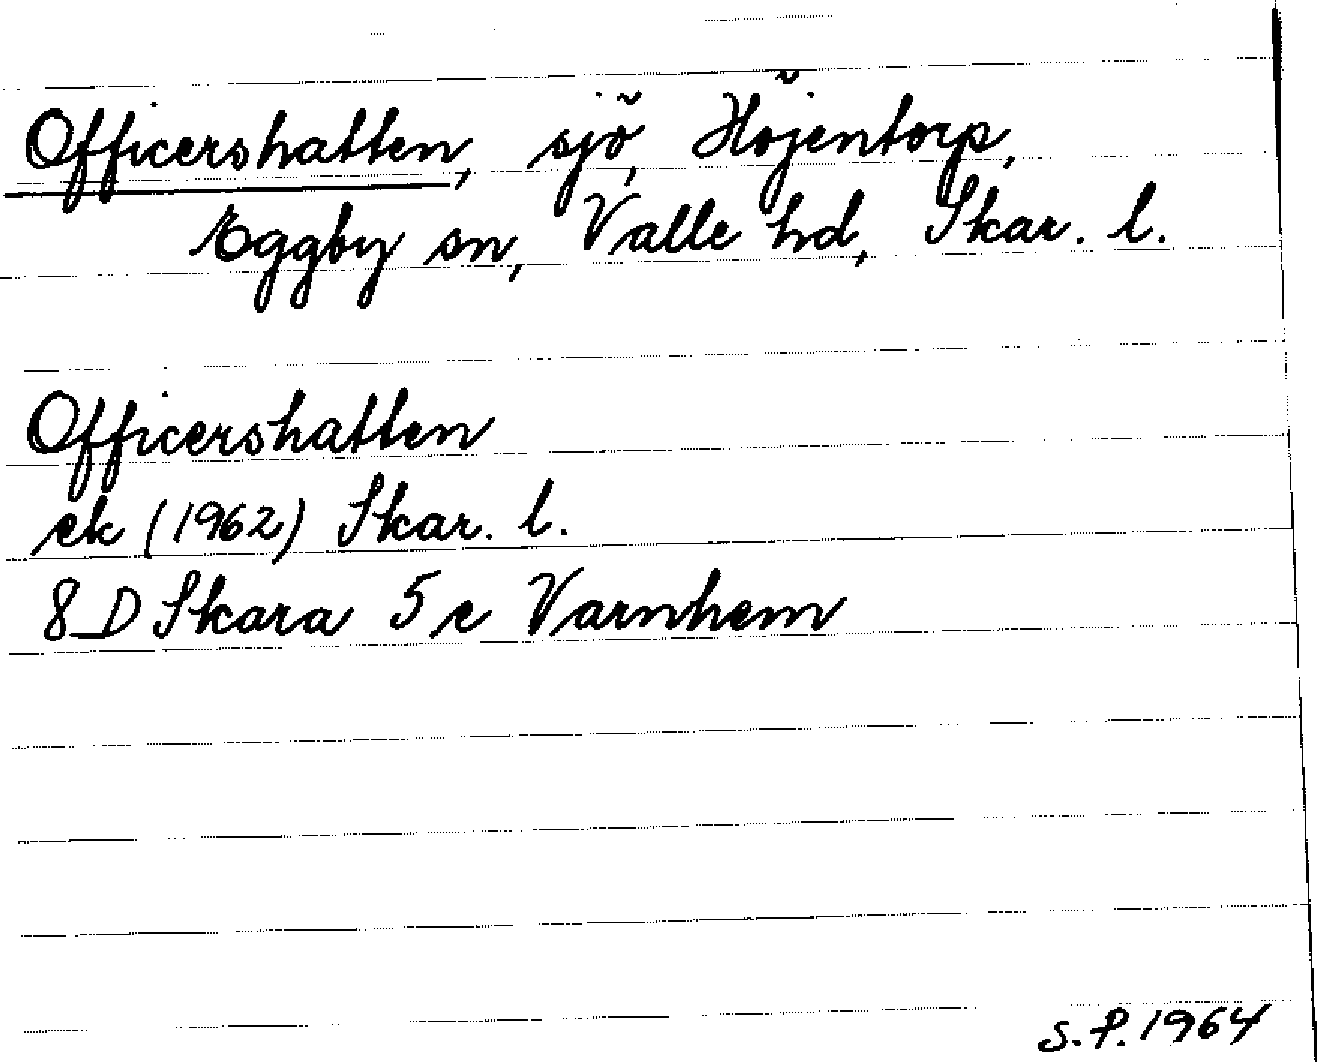 Officershatten, sjö, Höjentorp,
Eggby sn, Valle hd, Skar. l.
Officershatten
ek (1962) Skar. l.
8 D Skara 5 e Varnhem
S.P. 1964